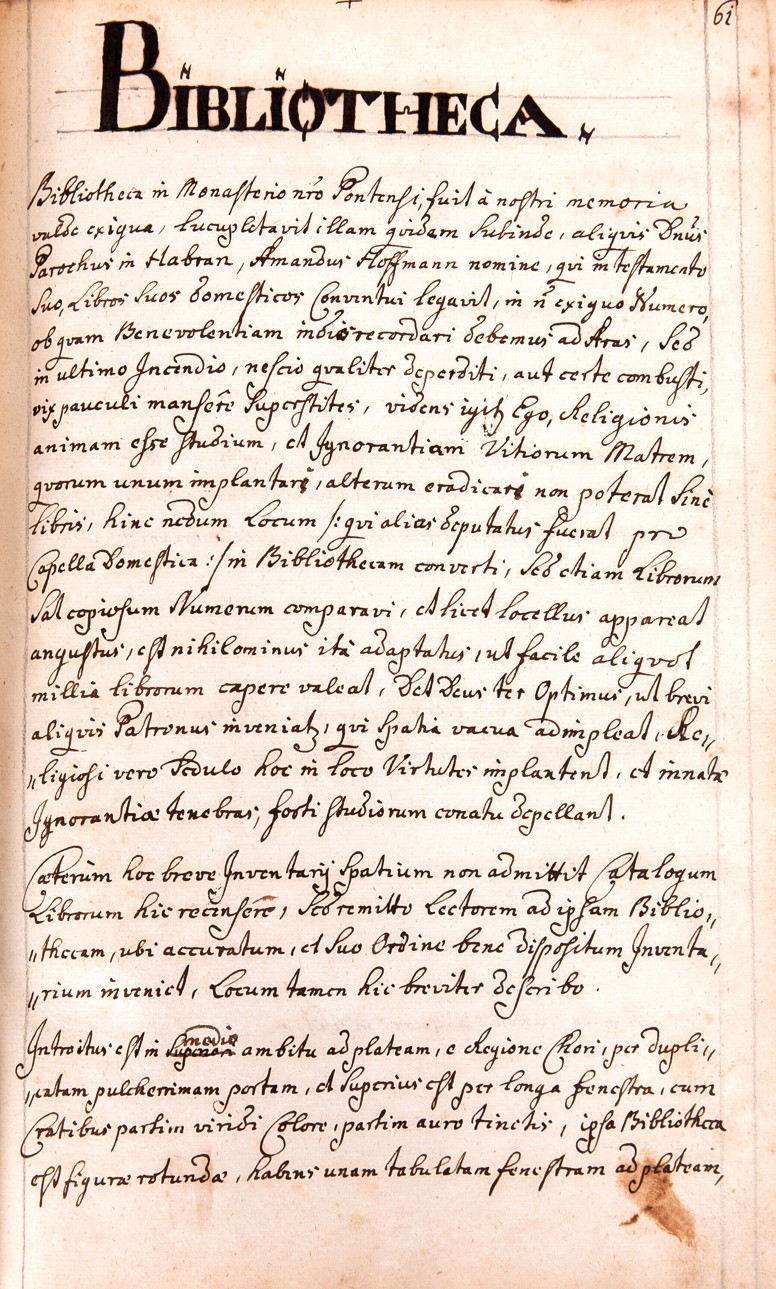 61
BIBLIOTHECA.
Bibliotheca in Monasterio nrõ Pontensi, fuit à nostri memoria
valde exigua, lucupletavit illam quidam subinde, aliquis Dnũs
Parochus in Habran, Amandus Hoffmann nomine, qui in testamento
suo, Libros suos domesticos Conventui legavit, in ñ exiguo Numero,
ob quam Benevolentiam indies recordari debemus ad Aras, Sed
in ultimo Incendio, nescio qualiter deperditi, aut certe combusti,
vix pauculi mansere Superstites, videns igitq Ego, Religionis
animam esse studium, et Ignorantiam Vitiorum Matrem,
quorum unum implantari, alterum eradicari non poterat sine
libris, hinc nedum Locum /: qui alias deputatus fuerat pro
Capella Domestica :/ in Bibliothecam converti, Sed etiam Librorum
sat copiosum Numerum comparavi, et licet locellus appareat
angustus, est nihilominus ità adaptatus, ut facile aliquot
millia librorum capere valeat, Det Deus ter Optimus, ut brevi
aliquis Patronus inveniatz, qui spatia vacua adimpleat, Re„
„ligiosi vero Sedulo hoc in loco Virtutes implantent, et innatæ
Ignorantiæ tenebras, forti studiorum conatu depellant.
Cæterùm hoc breve Inventarij spatium non admittit Catalogum
Librorum hic recensere, Sed remitto Lectorem ad ipsam Biblio„
„thecam, ubi accuratum, et suo Ordine bene dispositum Inventa„
„rium inveniet, Locum tamen hic breviter describo.
Introitus est in medio ambitu ad plateam, e Regione Chori, per dupli„
„catam pulcherrimam portam, et superius est per longa fenestra, cum
Cratibus partim viridi Colore, partim auro tinctis, ipsa Bibliotheca
est figuræ rotundæ, habens unam tabulatam fenestram ad plateam,